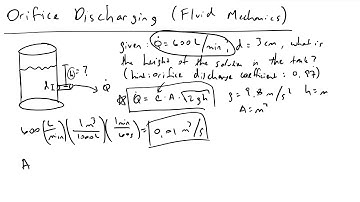 Orifice Discharging (Fluid Mechanics)
given: Q̇=600L/min, d=3cm, what is
the height of the solution in the tank?
(hint: orifice discharge coefficient: 0.97)
h=?
d
Q̇
* Q̇ = C·A·√2gh
g=9.8m/s² h=m
A=m²
600(L/min)(1m³/1000L)(1min/60s)=0.01m³/s
A